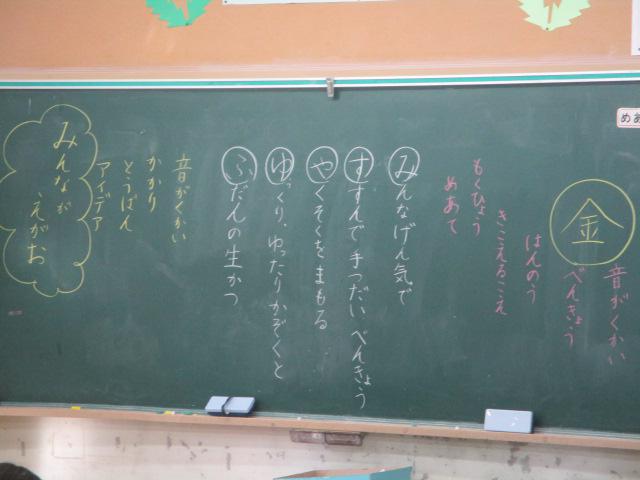 めあ
金
音がくかい
べんきょう
はんのう
きこえるこえ
もくひょう
めあて
みんなげん気で
すすんで手つだい、べんきょう
やくそくをまもる
ゆっくり、ゆったりかぞくと
ふだんの生かつ
音がくかい
かかり
とうばん
アイデア
みんなが
えがお